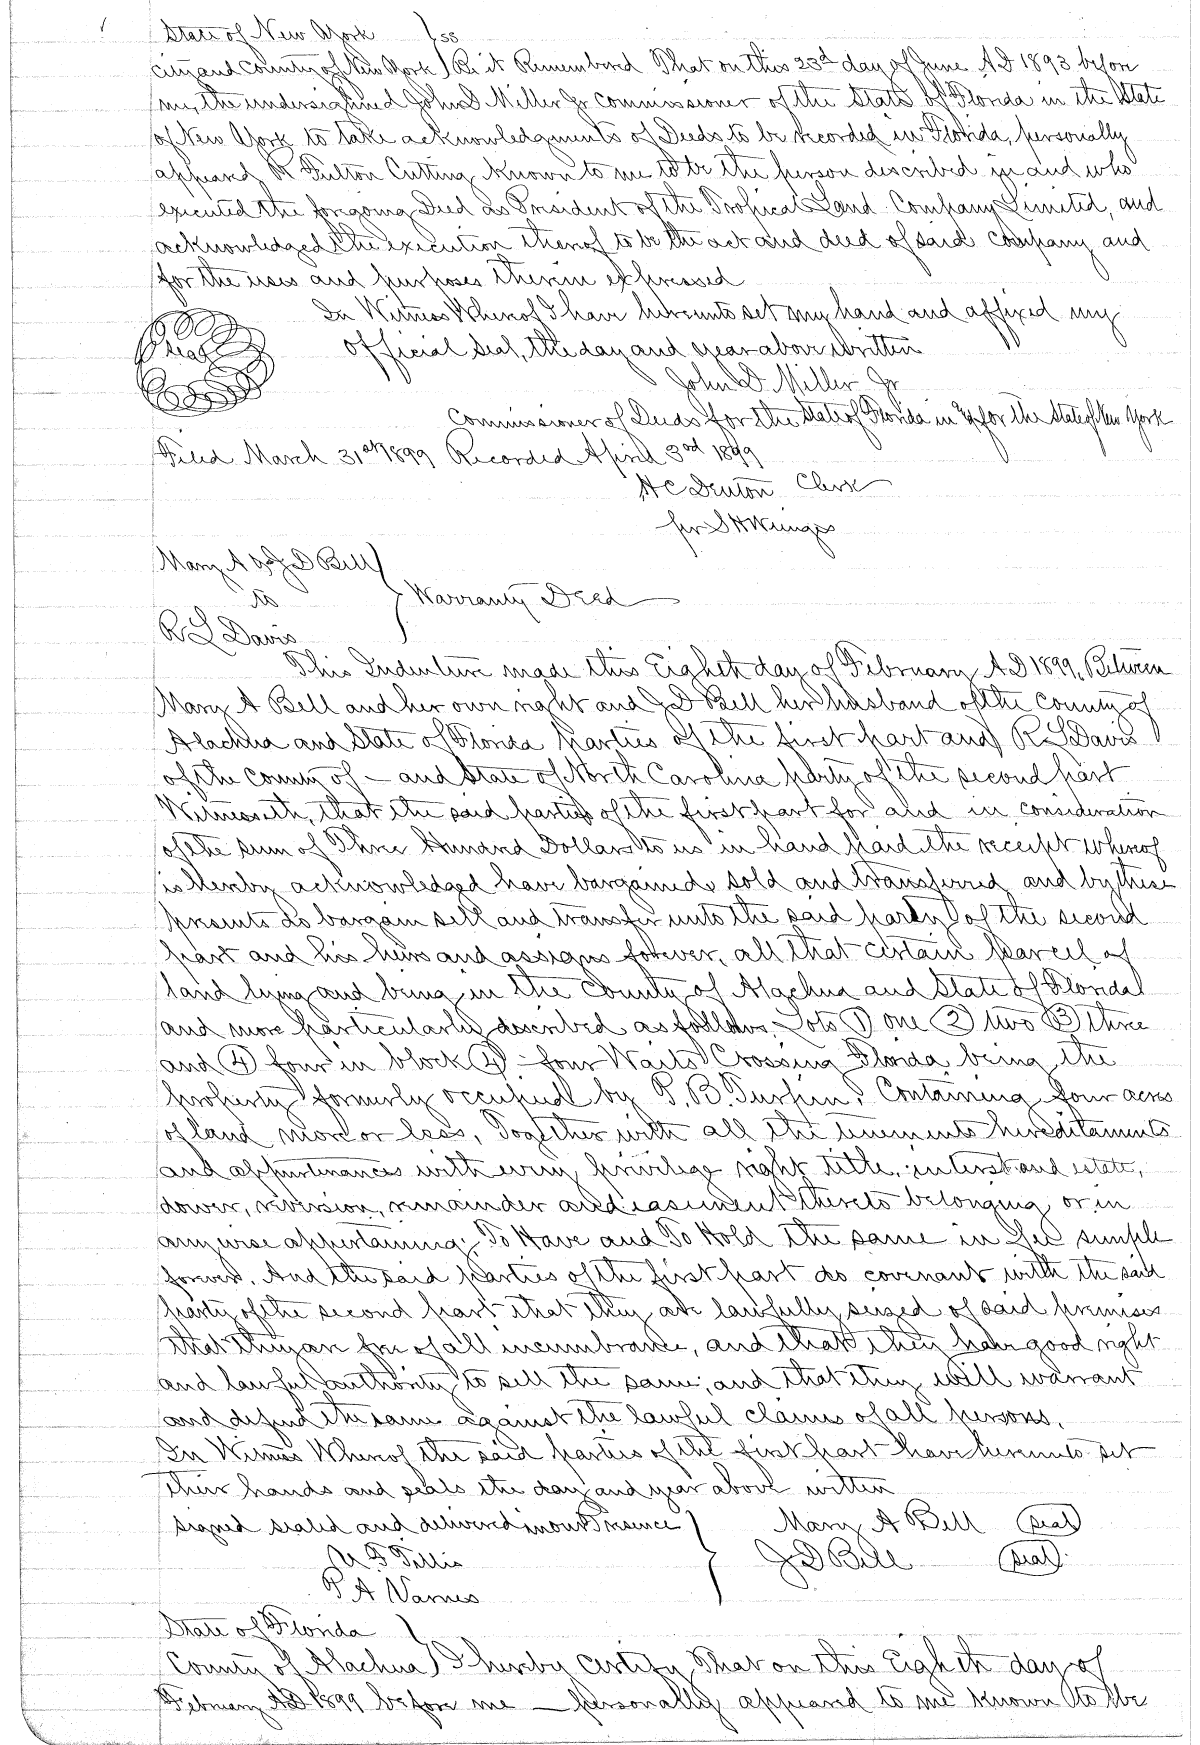 State of New York } ss
City and County of New York } Be it Remembered That on this 23d day of June A D 1893 before
me, the undersighned John D Miller Jr commissioner of the State of Florida in the State
of New York to take acknowledgments of Deeds to be recorded in Florida, personally
appeared R Fulton Cutting known to me to be the person described in and who
executed the forgoing Deed as President of the Tropical Land Company Limited, and
acknowledged the execution thereof to be the act and deed of said company and
for the uses and purposes therein expressed
In Witness Whereof I have hereunto set my hand and affixed my
Seal
official seal, the day and year above written
John D. Miller Jr
Commissioner of Deeds for the State of Florida in & for the State of New York
Filed March 31st 1899 Recorded April 3rd 1899
H C Denton Clerk
per S H Wienges
Mary A & J D Bell }
to } Warranty Deed
R L Davis
This Indenture made this Eighth day of February A D 1899, Between
Mary A Bell and her own right and J D Bell her husband of the County of
Alachua and State of Florida parties of the first part and R L Davis
of the County of — and State of North Carolina party of the second part
Witnesseth, that the said parties of the first part for and in consideration
of the sum of Three Hundred Dollars to us in hand paid the receipt whereof
is hereby acknowledged have bargained, sold and transferred and by these
presents do bargain sell and transfer unto the said party of the second
part and his heirs and assigns forever, all that certain parcel of
land lying and being in the County of Alachua and State of Florida
and more particularly described as follows. Lots (1) one (2) two (3) three
and (4) four in block (4) four Waits Crossing Florida being the
property formerly occupied by P. B. Turpin. Containing four acres
of land more or less, Together with all the tenements hereditaments
and appurtenances with every privilege right title, interest and estate,
dower, reversion, remainder and easement thereto belonging or in
any wise appertaining: To Have and To Hold the same in fee simple
forever. And the said parties of the first part do covenant with the said
party of the second part that they are lawfully seized of said premises
that they are free of all incumbrance, and that they have good right
and lawful authority to sell the same; and that they will warrant
and defend the same against the lawful claims of all persons.
In Witness Whereof the said parties of the first part have hereunto set
their hands and seals the day and year above written
Signed sealed and delivered in our Presence } Mary A Bell (seal)
J D Bell (seal)
P A Varnes
State of Florida }
County of Alachua } I hereby certify That on this Eighth day of
February A D 1899 before me — personally appeared to me known to be